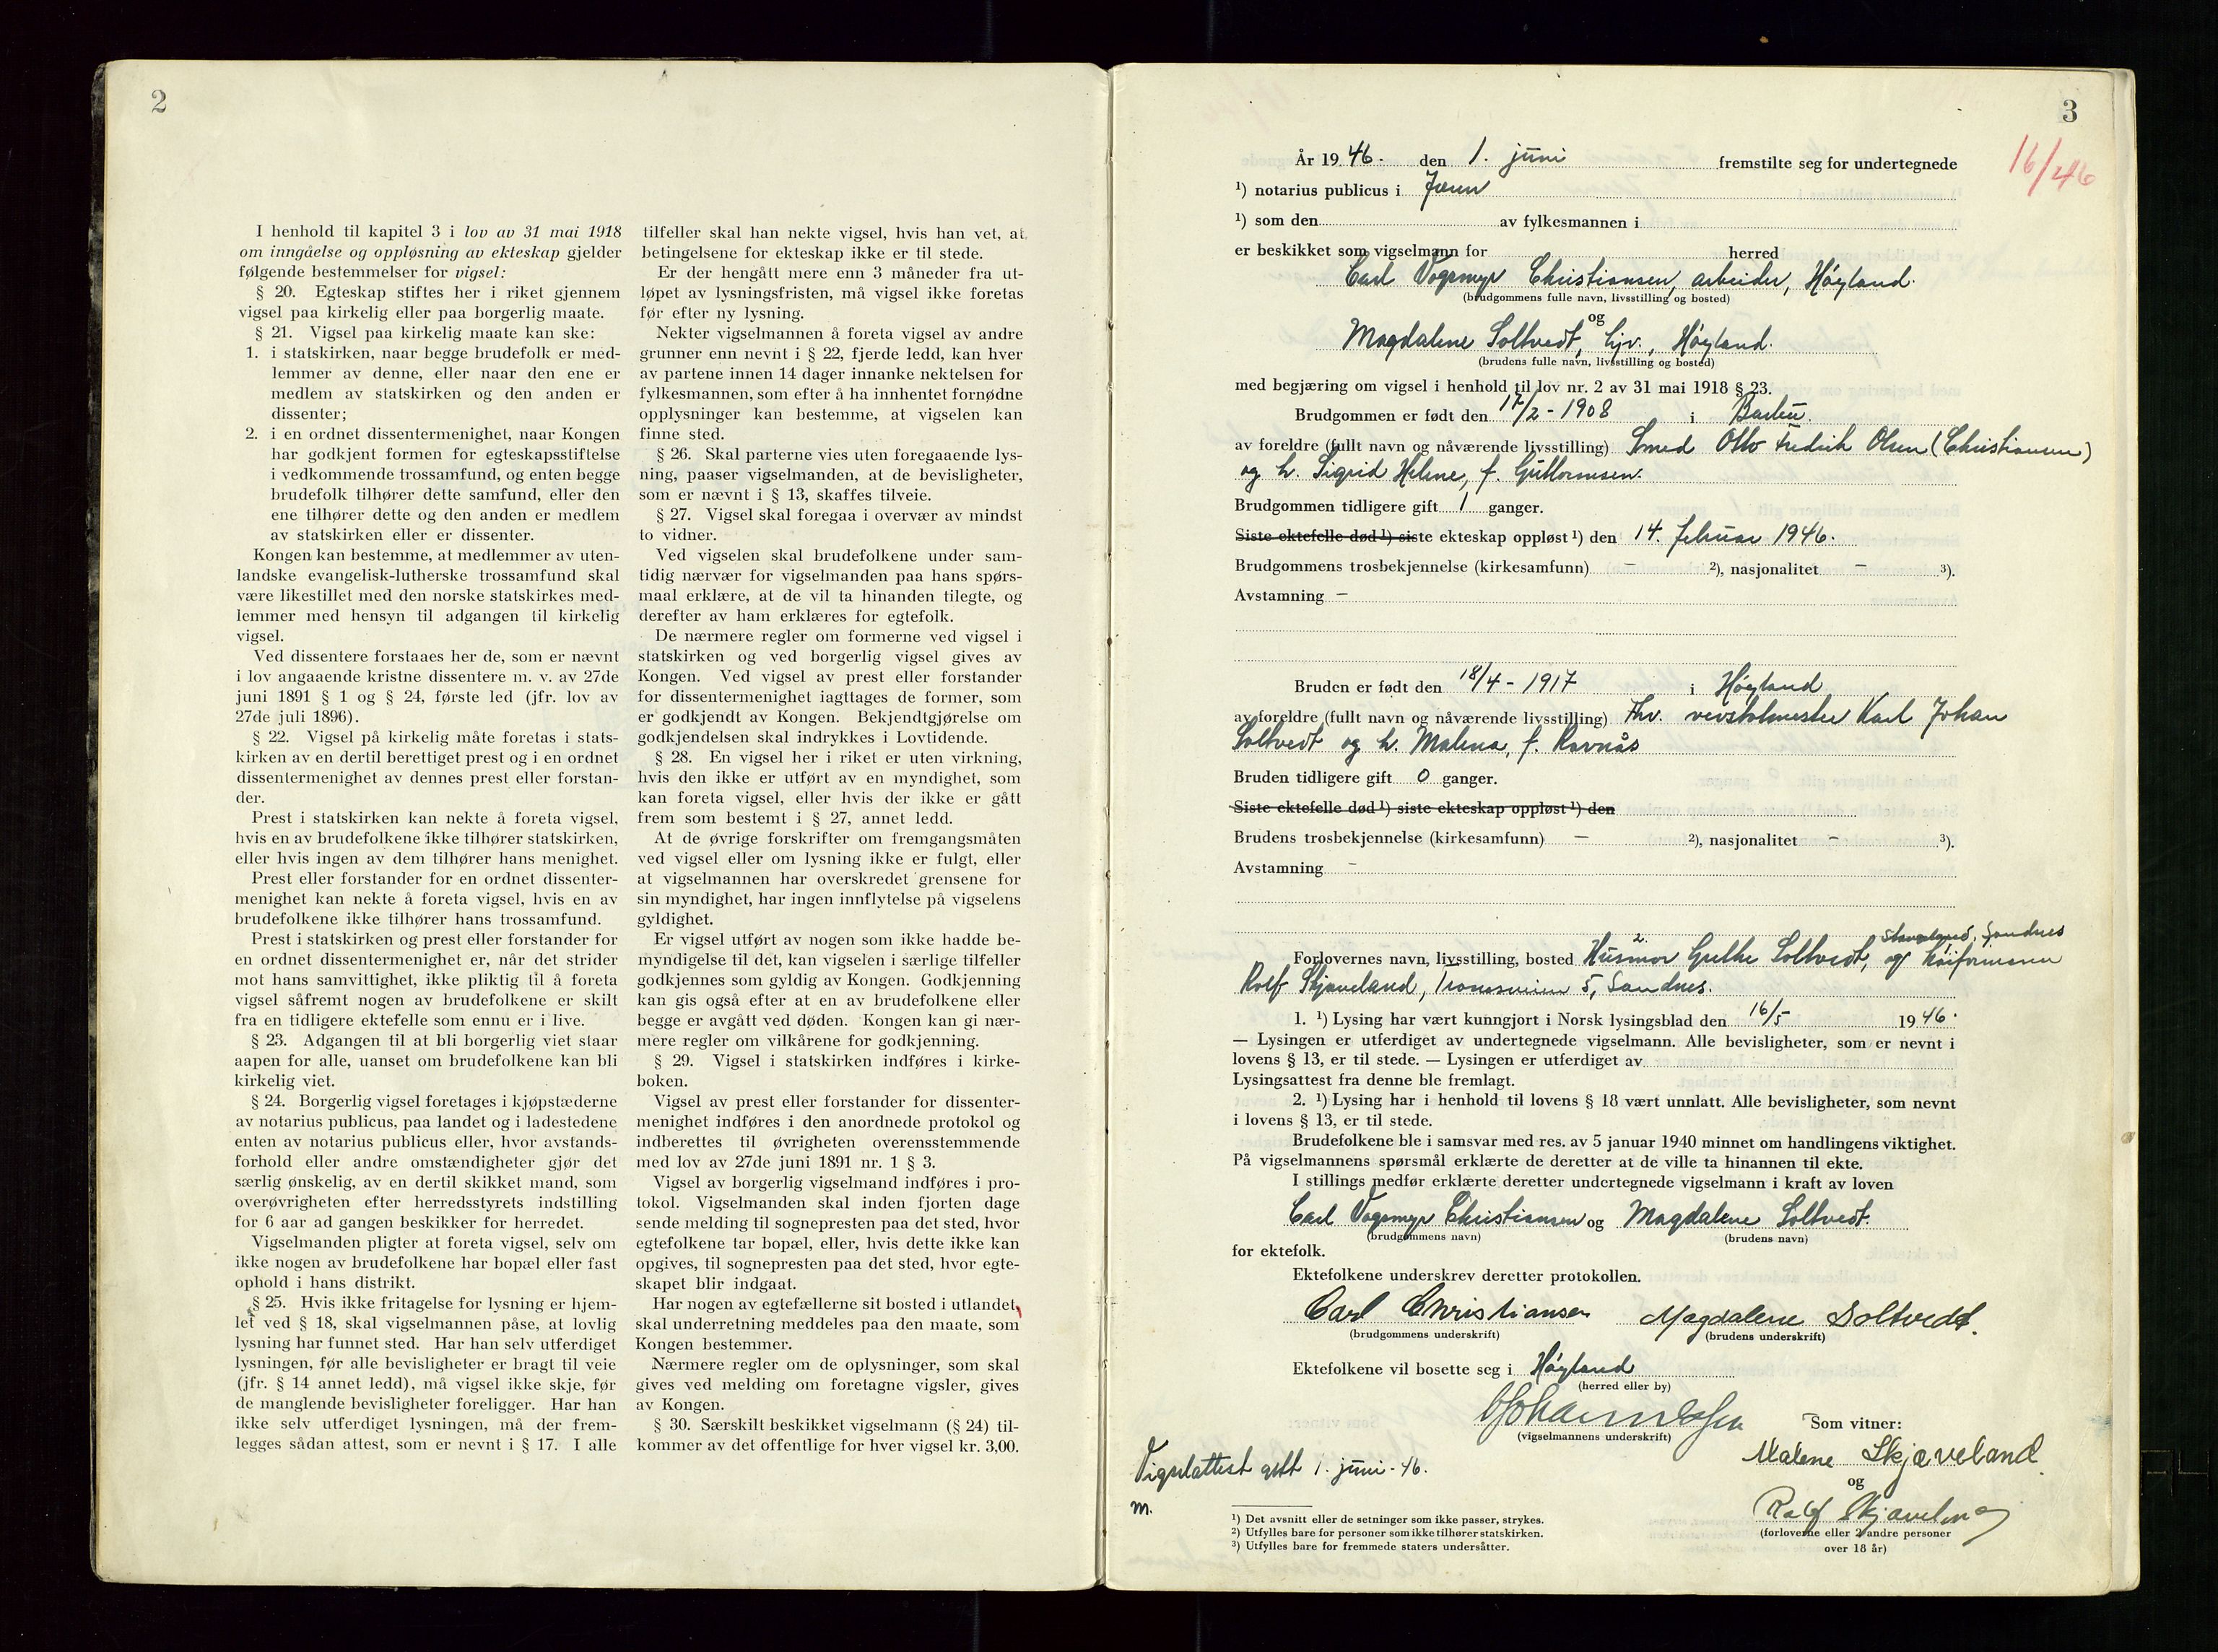 2
I henhold til kapitel 3 i lov av 31 mai 1918
om inngåelse og oppløsning av ekteskap gjelder
følgende bestemmelser for vigsel:
§ 20. Egteskap stiftes her i riket gjennem
vigsel paa kirkelig eller paa borgerlig maate.
§ 21. Vigsel paa kirkelig maate kan ske:
1. i statskirken, naar begge brudefolk er med-
lemmer av denne, eller naar den ene er
medlem av statskirken og den anden er
dissenter;
2. i en ordnet dissentermenighet, naar Kongen
har godkjent formen for egteskapsstiftelse
i vedkommende trossamfund, og enten begge
brudefolk tilhører dette samfund, eller den
ene tilhører dette og den anden er medlem
av statskirken eller er dissenter.
Kongen kan bestemme, at medlemmer av uten-
landske evangelisk-lutherske trossamfund skal
være likestillet med den norske statskirkes med-
lemmer med hensyn til adgangen til kirkelig
vigsel.
Ved dissentere forstaaes her de, som er nævnt
i lov angaaende kristne dissentere m. v. av 27de
juni 1891 § 1 og § 24, første led (jfr. lov av
27de juli 1896).
§ 22. Vigsel på kirkelig måte foretas i stats-
kirken av en dertil berettiget prest og i en ordnet
dissentermenighet av dennes prest eller forstan-
der.
Prest i statskirken kan nekte å foreta vigsel,
hvis en av brudefolkene ikke tilhører statskirken,
eller hvis ingen av dem tilhører hans menighet.
Prest eller forstander for en ordnet dissenter-
menighet kan nekte å foreta vigsel, hvis en av
brudefolkene ikke tilhører hans trossamfund.
Prest i statskirken og prest eller forstander for
en ordnet dissentermenighet er, når det strider
mot hans samvittighet, ikke pliktig til å foreta
vigsel såfremt nogen av brudefolkene er skilt
fra en tidligere ektefelle som ennu er i live.
§ 23. Adgangen til at bli borgerlig viet staar
aapen for alle, uanset om brudefolkene kan bli
kirkelig viet.
§ 24. Borgerlig vigsel foretages i kjøpstæderne
av notarius publicus, paa landet og i ladestedene
enten av notarius publicus eller, hvor avstands-
forhold eller andre omstændigheter gjør det
særlig ønskelig, av en dertil skikket mand, som
overøvrigheten efter herredsstyrets indstilling
for 6 aar ad gangen beskikker for herredet.
Vigselmanden pligter at foreta vigsel, selv om
ikke nogen av brudefolkene har bopæl eller fast
ophold i hans distrikt.
§ 25. Hvis ikke fritagelse for lysning er hjem-
let ved § 18, skal vigselmannen påse, at lovlig
lysning har funnet sted. Har han selv utferdiget
lysningen, før alle bevisligheter er bragt til veie
(jfr. § 14 annet ledd), må vigsel ikke skje, før
de manglende bevisligheter foreligger. Har han
ikke selv utferdiget lysningen, må der frem-
legges sådan attest, som er nevnt i § 17. I alle
tilfeller skal han nekte vigsel, hvis han vet, at
betingelsene for ekteskap ikke er til stede.
Er der hengått mere enn 3 måneder fra ut-
løpet av lysningsfristen, må vigsel ikke foretas
før efter ny lysning.
Nekter vigselmannen å foreta vigsel av andre
grunner enn nevnt i § 22, fjerde ledd, kan hver
av partene innen 14 dager innanke nektelsen for
fylkesmannen, som efter å ha innhentet fornødne
opplysninger kan bestemme, at vigselen kan
finne sted.
§ 26. Skal parterne vies uten foregaaende lys-
ning, paaser vigselmanden, at de bevisligheter,
som er nævnt i § 13, skaffes tilveie.
§ 27. Vigsel skal foregaa i overvær av mindst
to vidner.
Ved vigselen skal brudefolkene under sam-
tidig nærvær for vigselmanden paa hans spørs-
maal erklære, at de vil ta hinanden tilegte, og
derefter av ham erklæres for egtefolk.
De nærmere regler om formerne ved vigsel i
statskirken og ved borgerlig vigsel gives av
Kongen. Ved vigsel av prest eller forstander
for dissentermenighet iagttages de former, som
er godkjendt av Kongen. Bekjendtgjørelse om
godkjendelsen skal indrykkes i Lovtidende.
§ 28. En vigsel her i riket er uten virkning,
hvis den ikke er utført av en myndighet, som
kan foreta vigsel, eller hvis der ikke er gått
frem som bestemt i § 27, annet ledd.
At de øvrige forskrifter om fremgangsmåten
ved vigsel eller om lysning ikke er fulgt, eller
at vigselmannen har overskredet grensene for
sin myndighet, har ingen innflytelse på vigselens
gyldighet.
Er vigsel utført av nogen som ikke hadde be-
myndigelse til det, kan vigselen i særlige tilfeller
godkjennes som gyldig av Kongen. Godkjenning
kan gis også efter at en av brudefolkene eller
begge er avgått ved døden. Kongen kan gi nær-
mere regler om vilkårene for godkjenning.
§ 29. Vigsel i statskirken indføres i kirke-
boken.
Vigsel av prest eller forstander for dissenter-
menighet indføres i den anordnede protokol og
indberettes til øvrigheten overensstemmende
med lov av 27de juni 1891 nr. 1 § 3.
Vigsel av borgerlig vigselmand indføres i pro-
tokol. Vigselmanden skal inden fjorten dage
sende melding til sognepresten paa det sted, hvor
egtefolkene tar bopæl, eller, hvis dette ikke kan
opgives, til sognepresten paa det sted, hvor egte-
skapet blir indgaat.
Har nogen av egtefællerne sit bosted i utlandet,
skal underretning meddeles paa den maate, som
Kongen bestemmer.
Nærmere regler om de oplysninger, som skal
gives ved melding om foretagne vigsler, gives
av Kongen.
§ 30. Særskilt beskikket vigselmann (§ 24) til-
kommer av det offentlige for hver vigsel kr. 3,00.
3
16/46
År 1946. den 1. juni fremstilte seg for undertegnede
¹) notarius publicus i Jæren
¹) som den av fylkesmannen i
er beskikket som vigselmann for herred
Carl Vogsmyr Christiansen, arbeider, Høyland.
(brudgommens fulle navn, livsstilling og bosted)
og
Magdalene Soltvedt, hjv., Høyland.
(brudens fulle navn, livsstilling og bosted)
med begjæring om vigsel i henhold til lov nr. 2 av 31 mai 1918 § 23.
Brudgommen er født den 17/2 - 1908 i Barbu.
av foreldre (fullt navn og nåværende livsstilling) Smed Otto Fredrik Olsen (Christiansen)
og h. Sigrid Helene, f. Guttormsen.
Brudgommen tidligere gift 1 ganger.
Siste ektefelle død ¹) siste ekteskap oppløst ¹) den 14. februar 1946.
Brudgommens trosbekjennelse (kirkesamfunn) – ²), nasjonalitet – ³).
Avstamning –
Bruden er født den 18/4 - 1917 i Høyland
av foreldre (fullt navn og nåværende livsstilling) Fhv. vevstolmester Karl Johan
Soltvedt og h. Malena, f. Ravnås
Bruden tidligere gift 0 ganger.
Siste ektefelle død ¹) siste ekteskap oppløst ¹) den
Brudens trosbekjennelse (kirkesamfunn) – ²), nasjonalitet – ³).
Avstamning –
Skaveland, Sandnes
Forlovernes navn, livsstilling, bosted 2. Husmor Grethe Soltvedt, og
Rolf Skjæveland, 5, Sandnes.
1. ¹) Lysing har vært kunngjort i Norsk lysingsblad den 16/5 1946.
— Lysingen er utferdiget av undertegnede vigselmann. Alle bevisligheter, som er nevnt i
lovens § 13, er til stede. — Lysingen er utferdiget av
Lysingsattest fra denne ble fremlagt.
2. ¹) Lysing har i henhold til lovens § 18 vært unnlatt. Alle bevisligheter, som nevnt
i lovens § 13, er til stede.
Brudefolkene ble i samsvar med res. av 5 januar 1940 minnet om handlingens viktighet.
På vigselmannens spørsmål erklærte de deretter at de ville ta hinannen til ekte.
I stillings medfør erklærte deretter undertegnede vigselmann i kraft av loven
Carl Vogsmyr Christiansen og Magdalene Soltvedt.
(brudgommens navn) (brudens navn)
for ektefolk.
Ektefolkene underskrev deretter protokollen.
Carl Christiansen Magdalene Soltvedt.
(brudgommens underskrift) (brudens underskrift)
Ektefolkene vil bosette seg i Høyland
(herred eller by)
(vigselmannens underskrift)
Som vitner:
Malene Skjæveland
og
Rolf Skjæveland
(forloverne eller 2 andre personer
over 18 år)
Vigselattest gitt 1. juni - 46.
m.
¹) Det avsnitt eller de setninger som ikke passer, strykes.
²) Utfylles bare for personer som ikke tilhører statskirken.
³) Utfylles bare for fremmede staters undersåtter.